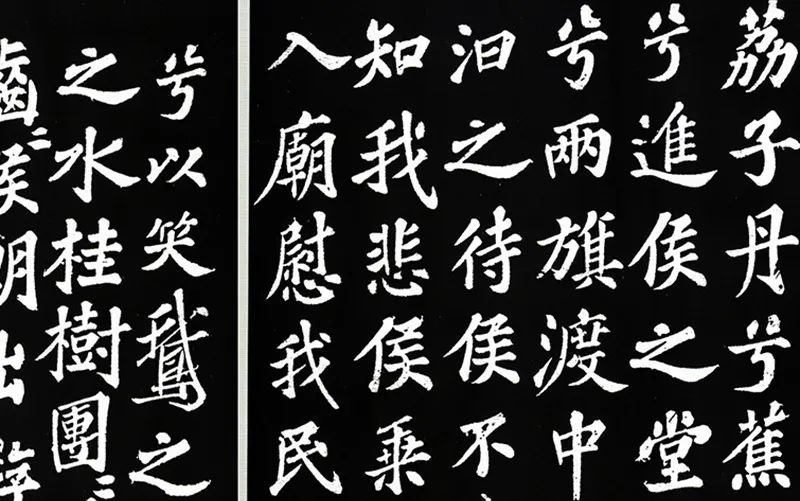 荔子丹兮蕉
兮進侯之堂
兮兩旗渡中
汩之待侯不
知我悲侯乗
入廟慰我民
兮以笑鵝之
之水桂樹團
齒二侯朝出